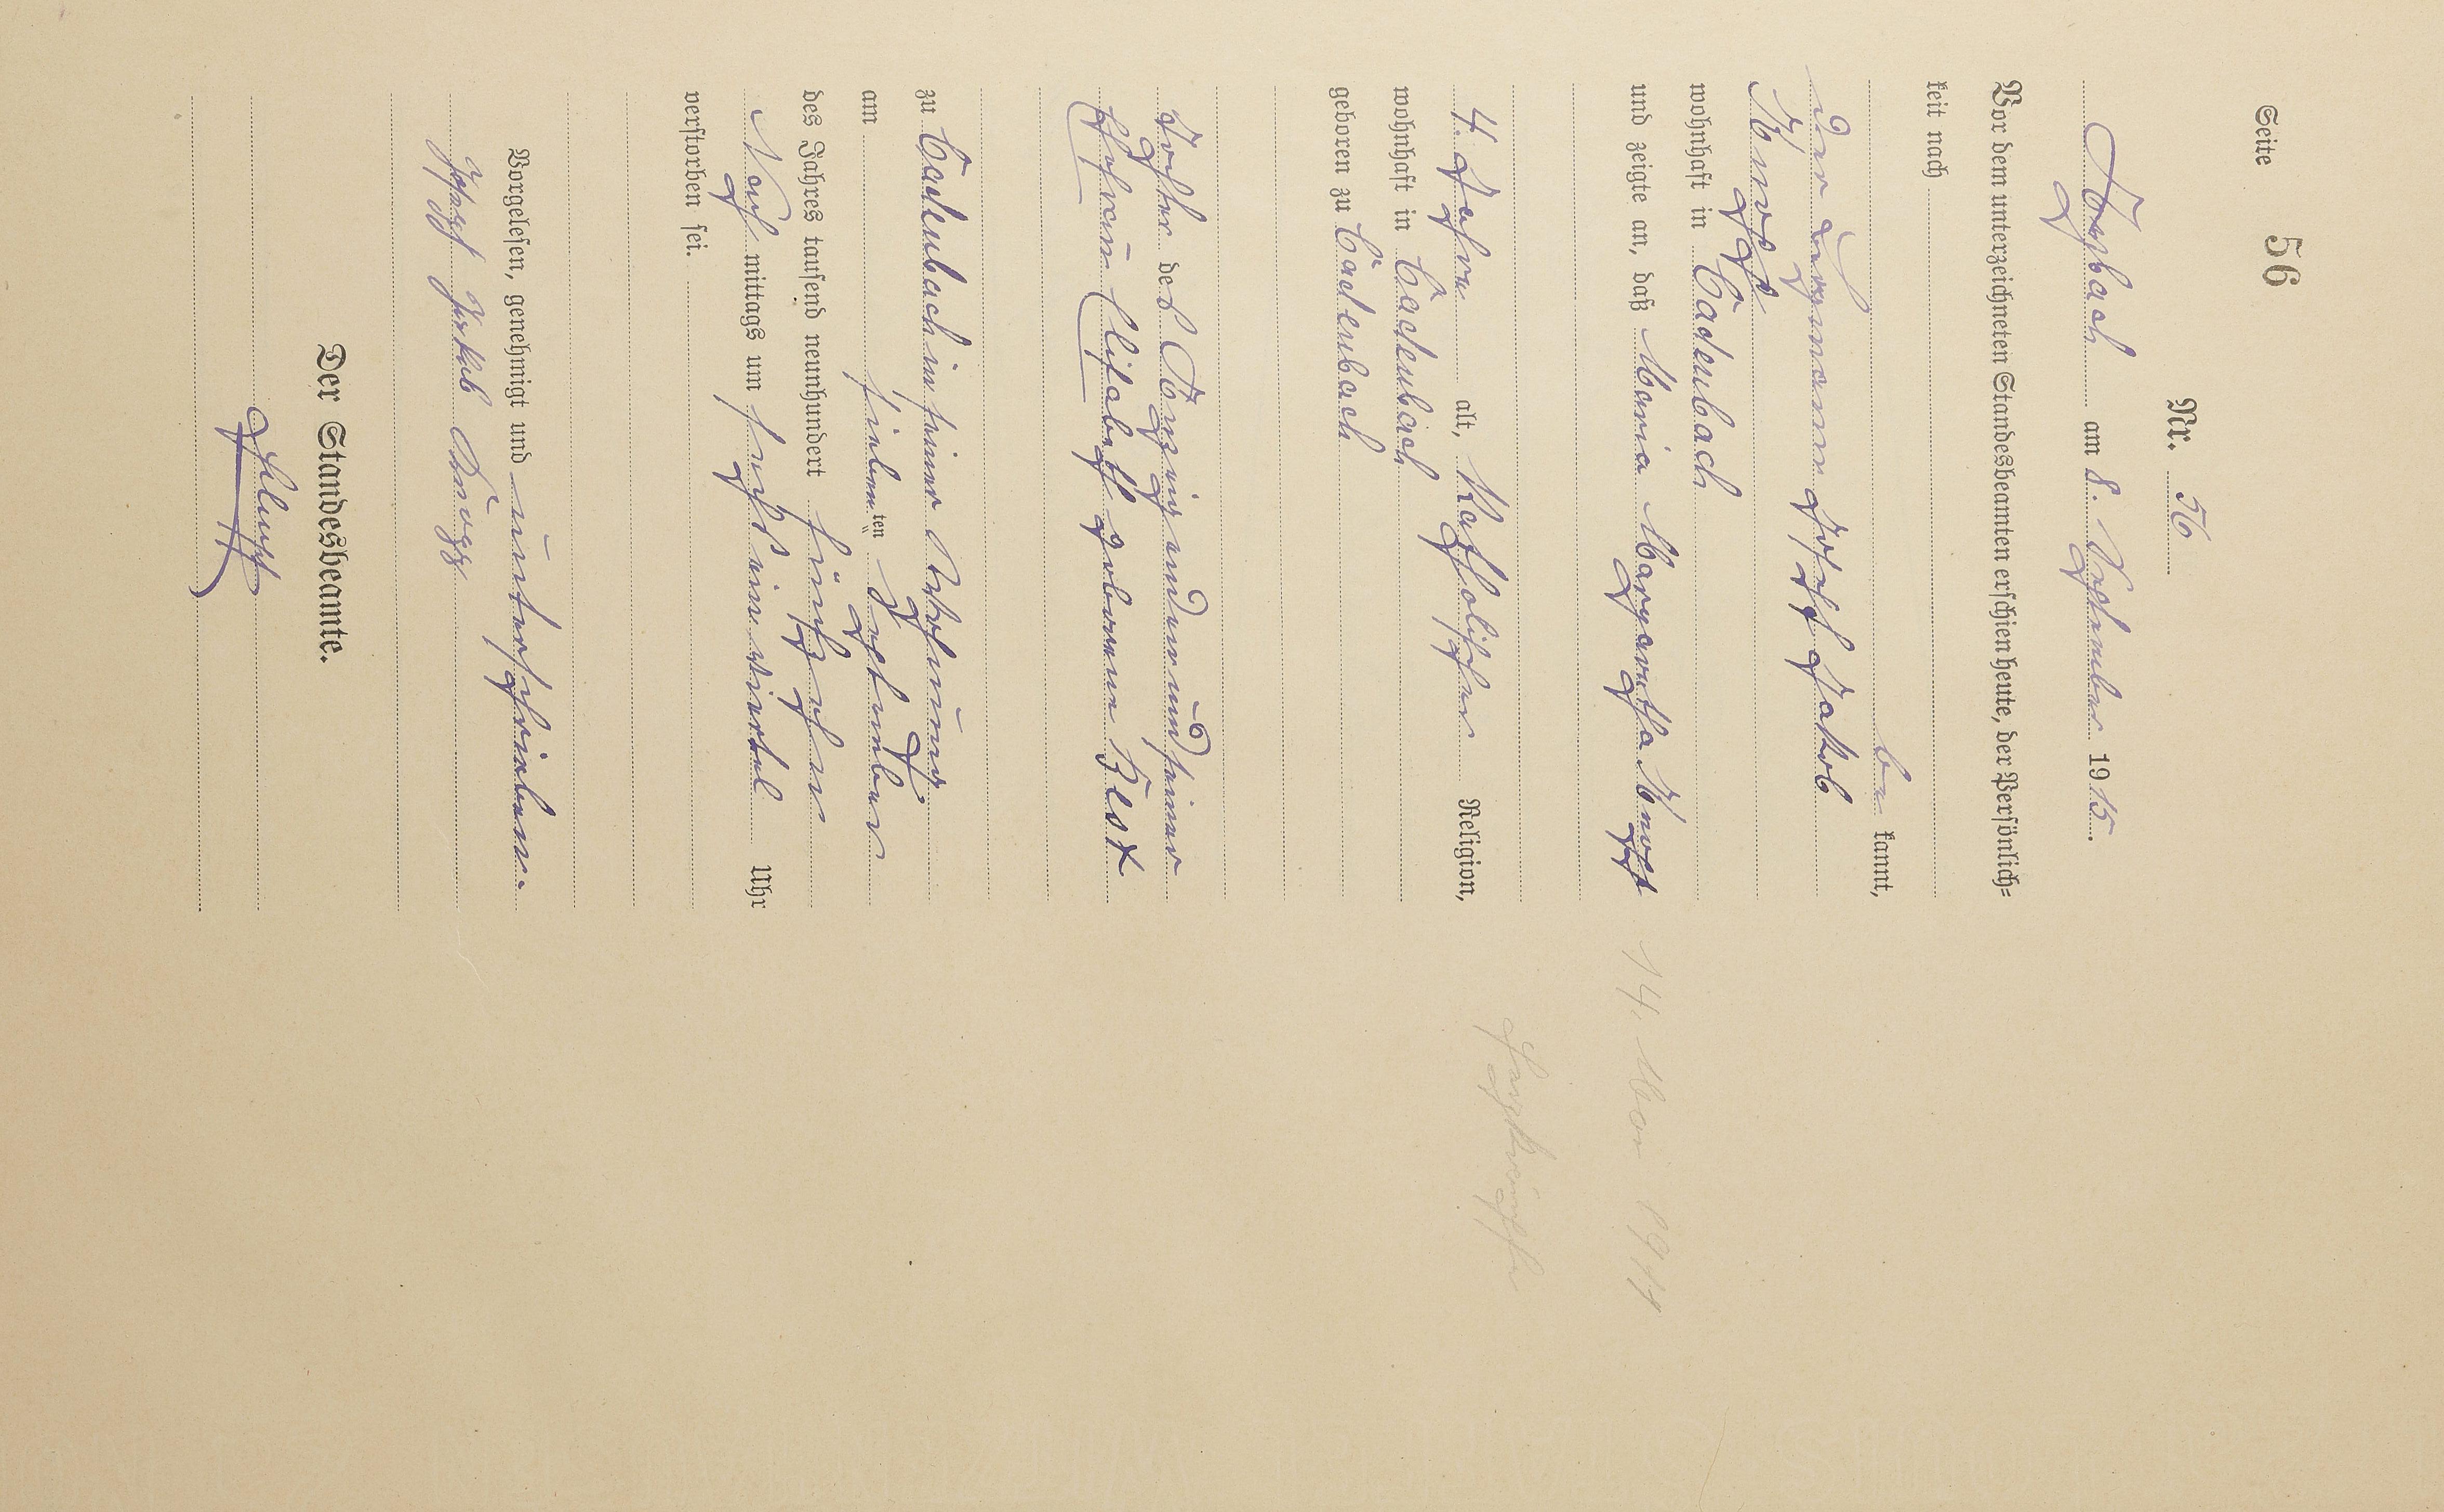 Seite 56
Nr. 56
Arzbach am 8. September 1915.
Vor dem unterzeichneten Standesbeamten erschien heute, der Persönlich-
keit nach
be kannt,
der Bergmann Josef Jakob
Knopp
wohnhaft in Cadenbach
und zeigte an, daß Maria Margaretha Knopp
14. Mai 1911
4 Jahre alt, Katholischer Religion,
wohnhaft in Cadenbach
geboren zu Cadenbach
Tochter des Anzeigenden und seiner
Ehefrau Elisabeth geborene Blex
zu Cadenbach in seiner Wohnung
am siebenten September
des Jahres tausend neunhundert fünfzehn
Nach mittags um sechs ein viertel Uhr
verstorben sei.
Vorgelesen, genehmigt und unterschrieben.
Josef Jakob Knopp
Der Standesbeamte.